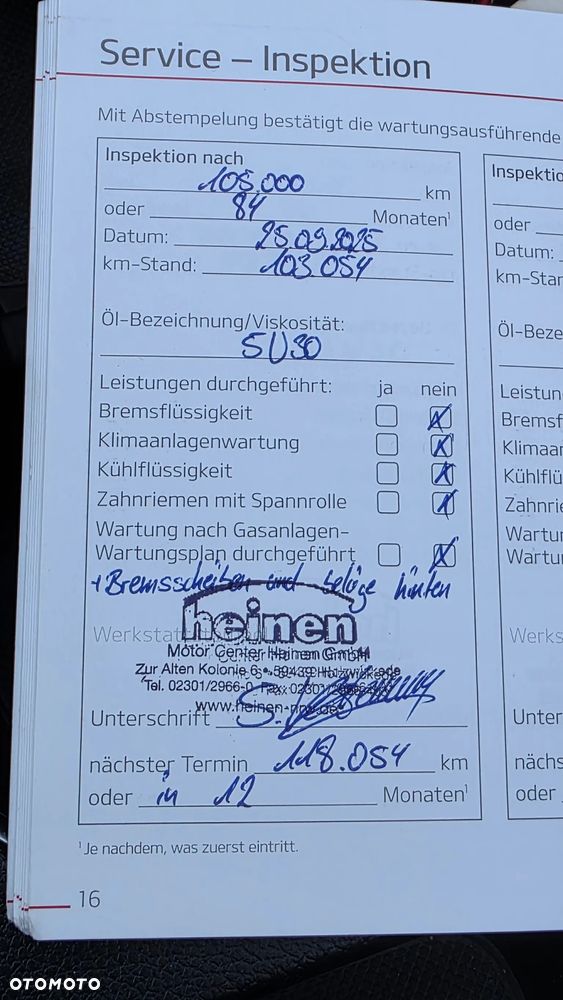 Service – Inspektion
Mit Abstempelung bestätigt die wartungsausführende
Inspektion nach
105.000 km
oder 84 Monaten¹
Datum: 25.09.2025
km-Stand: 103.054
Öl-Bezeichnung/Viskosität:
5W30
Leistungen durchgeführt: ja nein
Bremsflüssigkeit
Klimaanlagenwartung
Kühlflüssigkeit
Zahnriemen mit Spannrolle
Wartung nach Gasanlagen-
Wartungsplan durchgeführt
+ Bremsscheiben und beläge hinten
heinen
Motor Center Heinen GmbH
Zur Alten Kolonie 6 • 59439 Holzwickede
Tel. 02301/2966-0
Unterschrift
nächster Termin 118.054 km
oder in 12 Monaten¹
¹Je nachdem, was zuerst eintritt.
16
Inspektio
oder
Datum:
km-Star
Öl-Beze
Leistun
Bremsf
Klimaar
Kühlflü
Zahnrie
Wartur
Wartu
Werks
Unter
nächs
oder
OTOMOTO